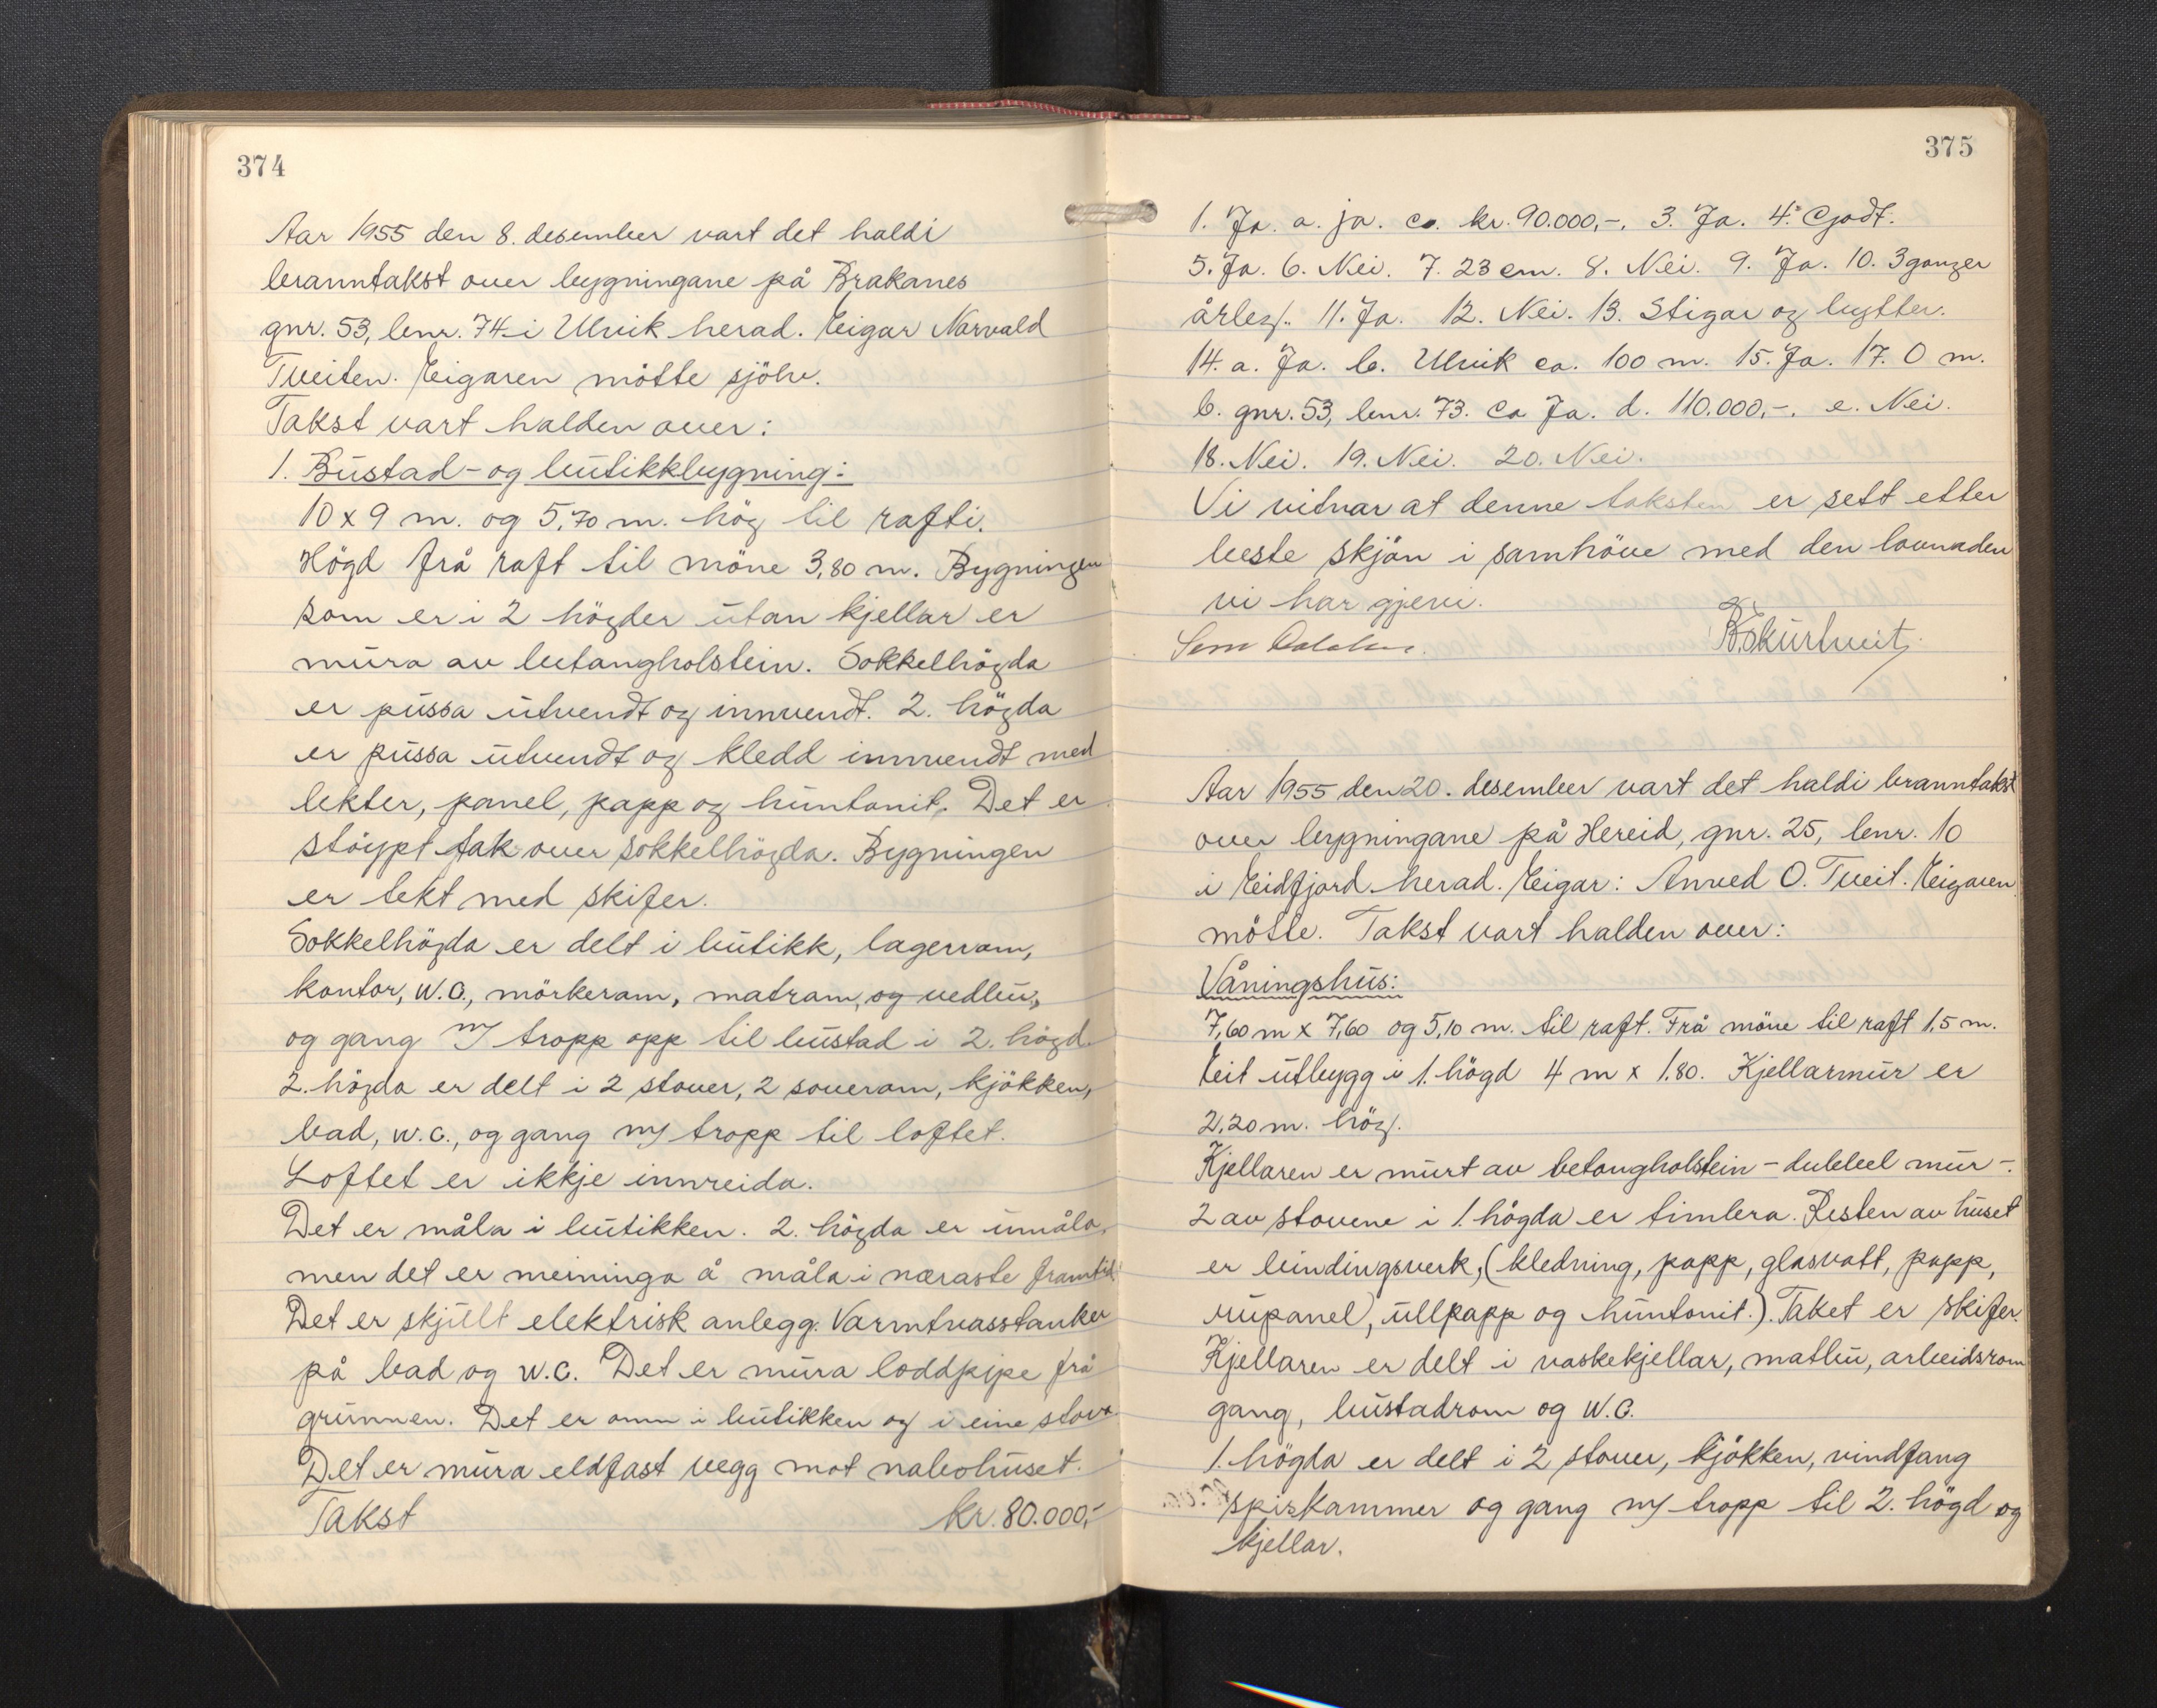 374
Aar 1955 den 8. desember vart det haldi
branntakst over bygningane på Brakanes
gnr. 53, bnr. 74 i Ulvik herad. Eigar Norvald
Tveiten. Eigaren mötte sjölv.
Takst vart halden over:
1. Bustad- og butikkbygning:
10 x 9 m. og 5,70 m. hög til rafti.
Högd frå raft til möne 3,80 m. Bygningen
som er i 2 högder utan kjellar er
mura av betongholstein. Sokkelhögda
er pussa utvendt og innvendt. 2. högda
er pussa utvendt og kledd innvendt med
lekter, panel, papp og huntonit. Det er
stöypt tak over sokkelhögda. Bygningen
er tekt med skifer.
Sokkelhögda er delt i butikk, lagerrom,
kontor, W.C., mörkerom, matrom, og vedbu,
og gang m/ tropp opp til bustad i 2. högd.
2. högda er delt i 2 stover, 2 soverom, kjökken,
bad, w.c., og gang m/ tropp til loftet.
Loftet er ikkje innreida.
Det er måla i butikken. 2. högda er umåla,
men det er meininga å måla i næraste framtid
Det er skjult elektrisk anlegg. Varmtvasstanker
på bad og w.c. Det er mura loddpipe frå
grunnen. Det er omn i butikken og i eine stova
Det er mura eldfast vegg mot nabohuset.
Takst kr. 80.000,-
375
1. Ja. a. ja. co. kr. 90.000,-. 3. Ja. 4. Godt.
5. Ja. 6. Nei. 7. 23 cm. 8. Nei. 9. Ja. 10. 3 ganger
årleg. 11. Ja. 12. Nei. 13. Stigar og bytter.
14. a. Ja. b. Ulvik ca. 100 m. 15. Ja. 17. 0 m.
b. gnr. 53, bnr. 73. Co Ja. d. 110.000,-. e. Nei.
18. Nei. 19. Nei. 20. Nei.
Vi vitnar at denne taksten er sett etter
beste skjön i samhöve med den lovnaden
vi har gjevi.
B. Skurtveit.
Aar 1955 den 20. desember vart det haldi branntakst
over bygningane på Hereid, gnr. 25, bnr. 10
i Eidfjord herad. Eigar: Anved O. Tveit. Eigaren
mötte. Takst vart halden over:
Våningshus:
7,60 m x 7,60 og 5,10 m. til raft. Frå möne til raft 1,5 m.
Eit utbygg i 1. högd 4 m x 1.80. Kjellarmur er
2,20 m. hög.
Kjellaren er murt av betongholstein - dubbel mur -.
2 av stovene i 1. högda er timbra. Resten av huset
er bindingsverk, (kledning, papp, glasvatt, papp,
rupanel, ullpapp og huntonit.). Taket er skifer.
Kjellaren er delt i vaskekjellar, matbu, arbeidsrom
gang, bustadrom og W.C.
1. högda er delt i 2 stover, kjökken, vindfang
spiskammer og gang m/ tropp til 2. högd og
kjellar.